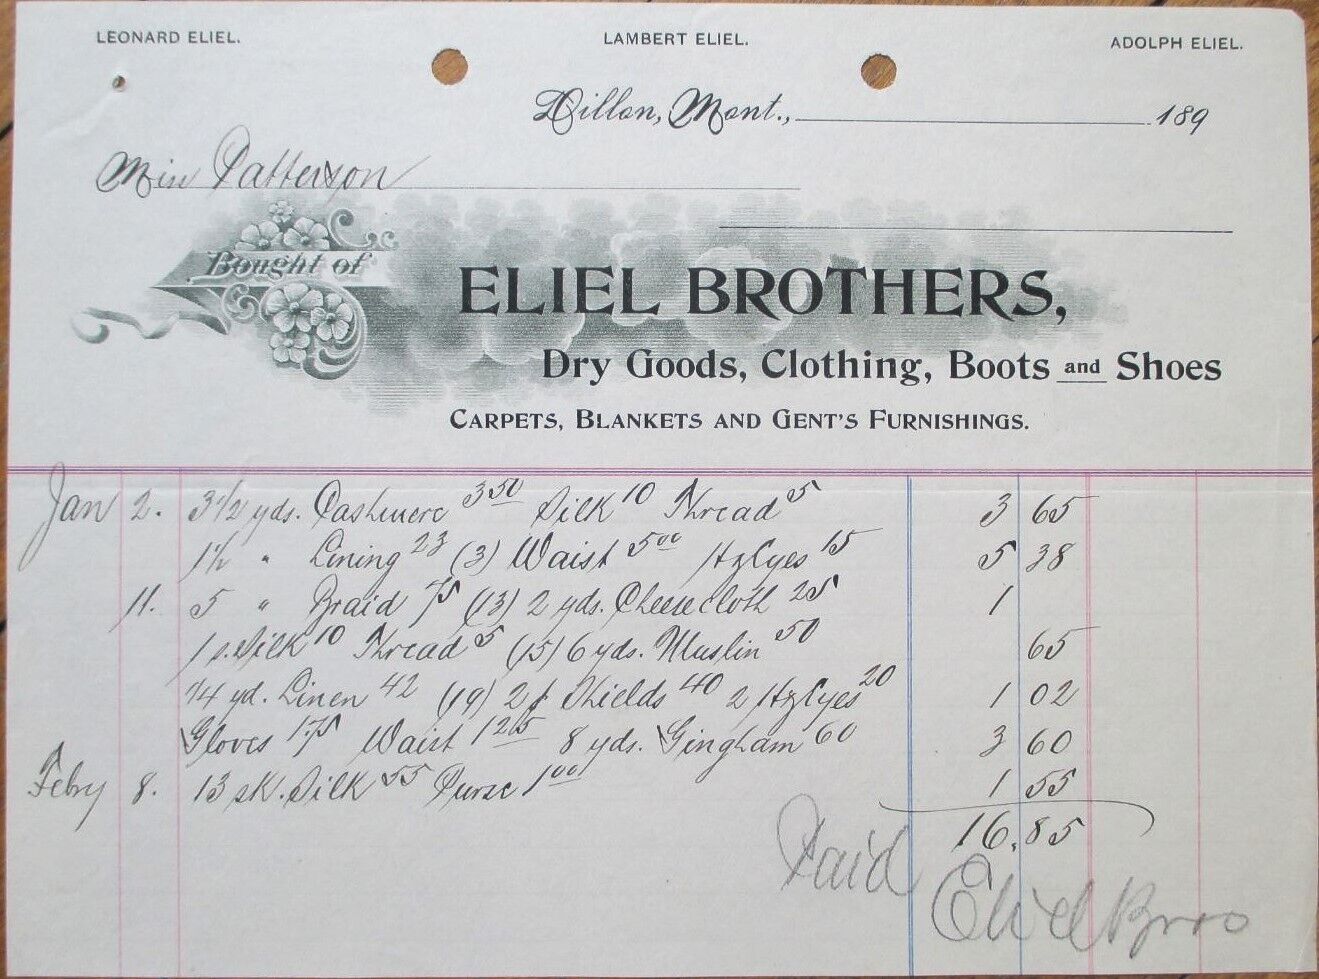 LEONARD ELIEL. LAMBERT ELIEL. ADOLPH ELIEL.
Dillon, Mont., 189
Miss Patterson
Bought of
ELIEL BROTHERS,
Dry Goods, Clothing, Boots and Shoes
CARPETS, BLANKETS AND GENT'S FURNISHINGS.
Jan 2. 3 1/2 yds. Cashmere 3 50 Silk 10 Thread 5 3 65
1 1/2 " Lining 23 (3) Waist 5 00 H & Eyes 15 5 38
11. 5 " Braid 75 (13) 2 yds. Cheesecloth 25 1
1 s. Silk 10 Thread 5 (15) 6 yds. Muslin 50 65
1/4 yd. Linen 42 (19) 2 p Shields 40 2 H & Eyes 20 1 02
Gloves 1.75 Waist 1 25 8 yds. Gingham 60 3 60
Feby 8. 13 sk. Silk 55 Purse 1 00 1 55
16.85
Paid
Eliel Bros